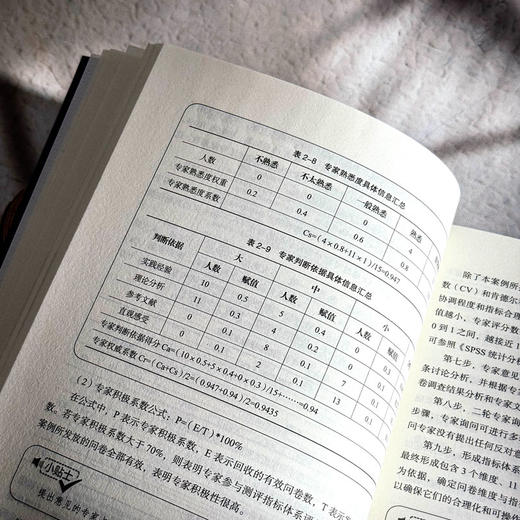 表2-8 专家熟悉度具体信息汇总
不熟悉 不太熟悉 一般熟悉 熟悉
人数 0 0 0 4
专家熟悉度权重 0.2 0.4 0.6 0.8
专家熟悉度系数 Cs=(4×0.8+11×1)/15=0.947
表2-9 专家判断依据具体信息汇总
判断依据 大 中 小
人数 赋值 人数 赋值 人数
实践经验 10 0.5 5 0.4 0
理论分析 11 0.3 4 0.2 0
参考文献 0 0.1 8 0.1 7
直观感受 0 0.1 2 0.1 13
专家判断依据得分Ca=(10×0.5+5×0.4+0×0.3)/15+……=0.94
专家权威系数Cr=(Ca+Cs)/2=(0.947+0.94)/2=0.9435
(2)专家积极系数公式:P=(E/T)*100%
在公式中,P表示专家积极系数,E表示回收的有效问卷数,T表示
数。若专家积极系数大于70%,则表明专家参与测评指标体系
案例所发放的问卷全部有效,表明专家积极性很高。
小贴士
提出意见的专家
除了本案例所
数(CV)和肯德尔
协调程度和指标合理
值越小,专家评分数
0到1之间,越接近1
可参照《SPSS统计分
第七步,专家意见
条讨论分析,并根据专
卷调查结果分析和专家
第八步,二轮专家询
步骤,专家询问可进行多
问专家没有提出任何反对意
第九步,形成指标体系
最终形成包含3个维度、11
为依据,确定问卷维度与指
以确保它们的合理化和可操